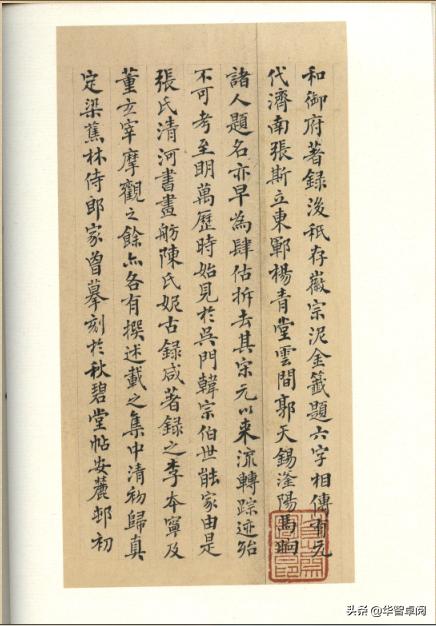 和御府著錄後秖存徽宗泥金籤題六字相傳有元
代濟南張斯立東鄆楊青堂雲間郭天錫滏陽馬昫
諸人題名亦早為肆估拆去其宋元以来流轉踪迹殆
不可考至明萬歷時始見於吳門韓宗伯世能家由是
張氏清河書畫舫陳氏妮古録咸著錄之李本寧及
董玄宰摩觀之餘亦各有撰述載之集中清初歸真
定梁蕉林侍郎家曾摹刻於秋碧堂帖安麓邨初
头条 @华智卓阅